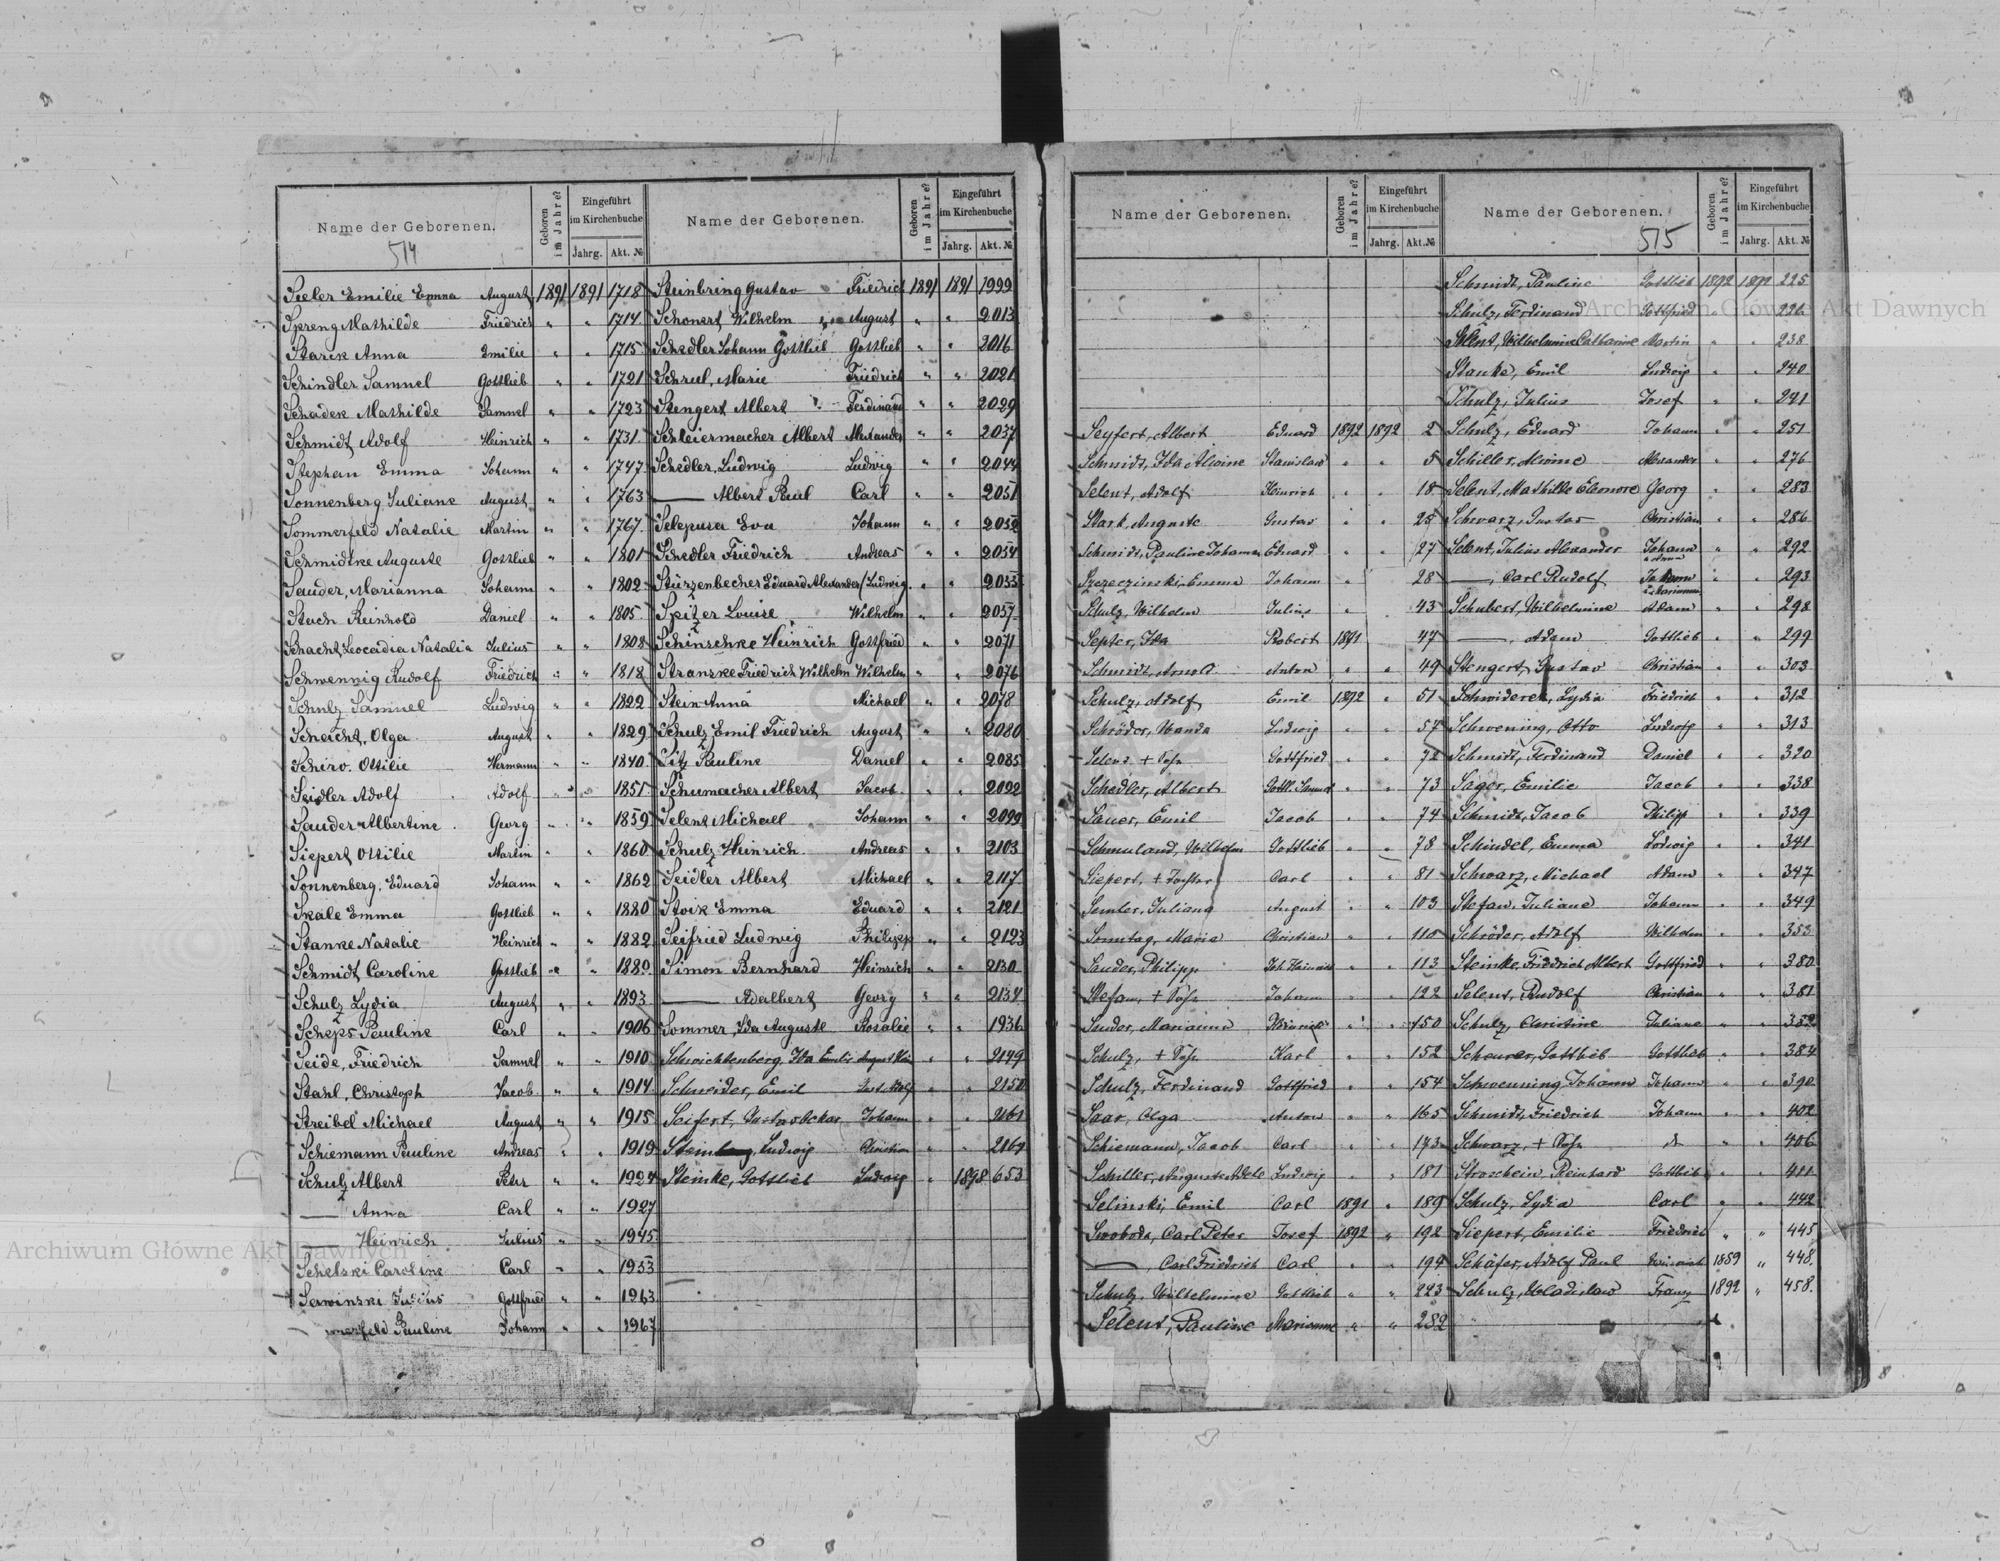 Name der Geborenen. Geboren im Jahre? Eingeführt im Kirchenbuche Jahrg. Akt. №
514
Seeler Emilie Emma August 1891 1891 1718
Spreng Mathilde Friedrich " " 1714
Starik Anna Emilie " " 1715
Schindler Samuel Gottlieb " " 1721
Schadek Mathilde Samuel " " 1723
Schmidt Adolf Heinrich " " 1731
Stephan Emma Johann " " 1747
Sonnenberg Juliane August " " 1763
Sommerfeld Natalie Martin " " 1767
Schmidtke Auguste Gottlieb " " 1801
Sauder, Marianna Johann " " 1802
Stach Reinhold Daniel " " 1805
Schacht Leocadia Natalia Julius " " 1808
Schwennig Rudolf Friedrich " " 1818
Schulz Samuel Ludwig " " 1822
Schlicht, Olga August " " 1829
Schiro. Ottilie Hermann " " 1840
Seidler Adolf Adolf " " 1851
Sauder Albertine Georg " " 1859
Siepert Ottilie Martin " " 1860
Sonnenberg, Eduard Johann " " 1862
Skale Emma Gottlieb " " 1880
Stanke Natalie Heinrich " " 1882
Schmidt Caroline Gottlieb " "
Schulz Lydia August " " 1893
Scheps Pauline Carl " " 1906
Seide, Friedrich Samuel " " 1910
Stahl, Christoph Jacob " " 1914
Streibel Michael August " " 1915
Schiemann Pauline Andreas " " 1919
Schulz Albert Peter " " 1924
— Anna Carl " " 1927
— Heinrich Julius " " 1945
Schelski Caroline Carl " " 1953
Serwinski Julius Gottfried " " 1963
Pauline Johann " " 1967
Name der Geborenen. Geboren im Jahre? Eingeführt im Kirchenbuche Jahrg. Akt. №
Steinbring Gustav Friedrich 1891 1891 1999
Schonert Wilhelm August " " 2013
Schedler Johann Gottlieb Gottlieb " " 2016
Schrul, Marie Friedrich " " 2021
Stengert Albert Ferdinand " " 2029
Schleiermacher Albert Alexander " " 2037
Schedler, Ludwig Ludwig " " 2044
— Albert Paul Carl " " 2051
Selepura Eva Johann " " 2052
Schedler Friedrich Andreas " " 2054
Stürzenbecher Eduard Alexander (Ludwig " " 2055
Spitzer Louise Wilhelm " " 2057
Schinschke Heinrich Gottfried " " 2071
Stranske Friedrich Wilhelm Wilhelm " " 2076
Stein Anna Michael " " 2078
Schulz Emil Friedrich August " " 2080
Sitz Pauline Daniel " " 2085
Schumacher Albert Jacob " " 2092
Selent Michael Johann " " 2099
Schulz Heinrich Andreas " " 2103
Seidler Albert Michael " " 2117
Stoik Emma Eduard " " 2121
Seifried Ludwig Philipp " " 2123
Simon Bernhard Heinrich " " 2130
— Adalbert Georg " " 2134
Sommer, Ida Auguste Rosalie " " 1936
Schwichtenberg, Ida Emilie August " " 2149
Schneider, Emil Gust. Adolf " " 2150
Seifert, Gustav Oskar Johann " " 2161
Ludwig Christian " " 2167
Steinke, Gottlieb Ludwig " 1898 653
Name der Geborenen. Geboren im Jahre? Eingeführt im Kirchenbuche Jahrg. Akt. №
Seyfert, Albert Eduard 1892 1892 2
Schmidt, Ida Alwine Stanislaw " " 5
Selent, Adolf Heinrich " " 18
Stark, Auguste Gustav " " 25
Schmidt, Pauline Johanna Eduard " " 27
Szczeczinski, Emma Johann " 28
Schulz, Wilhelm Julius " " 43
Septer, Ida Robert 1891 47
Schmidt, Arnold Anton " " 49
Schulz, Adolf Emil 1892 " 51
Schröder, Wanda Ludwig " " 57
Selent + Sohn Gottfried " " 72
Schedler, Albert Gottl. Samuel " " 73
Sauer, Emil Jacob " " 74
Schmuland, Wilhelm Gottlieb " " 78
Siepert, + Tochter Carl " " 81
Semler, Juliana August " " 103
Sonntag, Maria Christian " " 110
Sauder, Philipp Joh. Heinrich " " 113
Stefan, + Sohn Johann " " 122
Sauder, Marianna Heinrich " " 150
Schulz, + Sohn Karl " " 152
Schulz, Ferdinand Gottfried " " 154
Saar, Olga Anton " " 165
Schiemann, Jacob Carl " " 173
Schiller, Auguste Adele Ludwig " " 181
Selinski, Emil Carl 1891 " 189
Swoboda, Carl Peter Josef 1892 " 192
— Carl Friedrich Carl " " 194
Schulz, Wilhelmine Gottlieb " " 223
Selent, Pauline Marianne " " 282
Name der Geborenen. Geboren im Jahre? Eingeführt im Kirchenbuche Jahrg. Akt. №
515
Schmidt, Pauline Gottlieb 1892 1892 225
Schulz, Ferdinand Gottfried " " 226
Selent, Wilhelmine Catharine Martin " " 238
Stanke, Emil Ludwig " " 240
Schulz, Julius Josef " " 241
Schulz, Eduard Johann " " 251
Schiller, Alwine Alexander " " 276
Selent, Mathilde Eleonore Georg " " 283
Schwarz, Gustav Christian " " 286
Selent, Julius Alexander Johann " " 292
—, Carl Rudolf Johann " " 293
Schubert, Wilhelmine Adam " " 298
—, Adam Gottlieb " " 299
Stengert, Gustav Christian " " 303
Schniderek, Lydia Friedrich " " 312
Schwening, Otto Ludwig " " 313
Schmidt, Ferdinand Daniel " " 320
Sager, Emilie Jacob " " 338
Schmidt, Jacob Philipp " " 339
Schindel, Emma Ludwig " " 341
Schwarz, Michael Adam " " 347
Stefan, Juliane Johann " " 349
Schröder, Adolf Wilhelm " " 353
Steinke, Friedrich Albert Gottfried " " 380
Selent, Rudolf Christian " " 381
Schulz, Christine Juliane " " 382
Scheurer, Gottlieb Gottlieb " " 384
Schwenning, Johann Johann " " 390
Schmidt, Friedrich Johann " " 402
Schwarz, + Sohn " " 406
Stroschein, Reinhard Gottlieb " " 411
Schulz, Lydia Carl " " 442
Siepert, Emilie Friedrich " " 445
Schäfer, Adolf Paul Heinrich 1889 " 448
Schulz, Wladislaw Franz 1892 " 458.
Archiwum Główne Akt Dawnych
Archiwum Główne Akt Dawnych